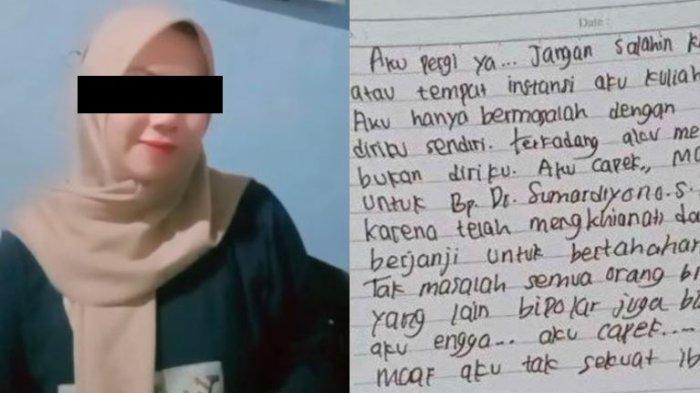 Date :
Aku pergi ya... Jangan salahin k
atau tempat instansi aku kuliah
Aku hanya bermasalah dengan
diriku sendiri. terkadang aku me
bukan diriku. Aku capek.,
untuk Bp. Dr. Sumardiyono. S
karena telah mengkhianati da
berjanji untuk bertahahan
Tak masalah semua orang bi
yang lain bipolar juga bi
aku engga.. aku capek.....
moaf aku tak sekuat ib